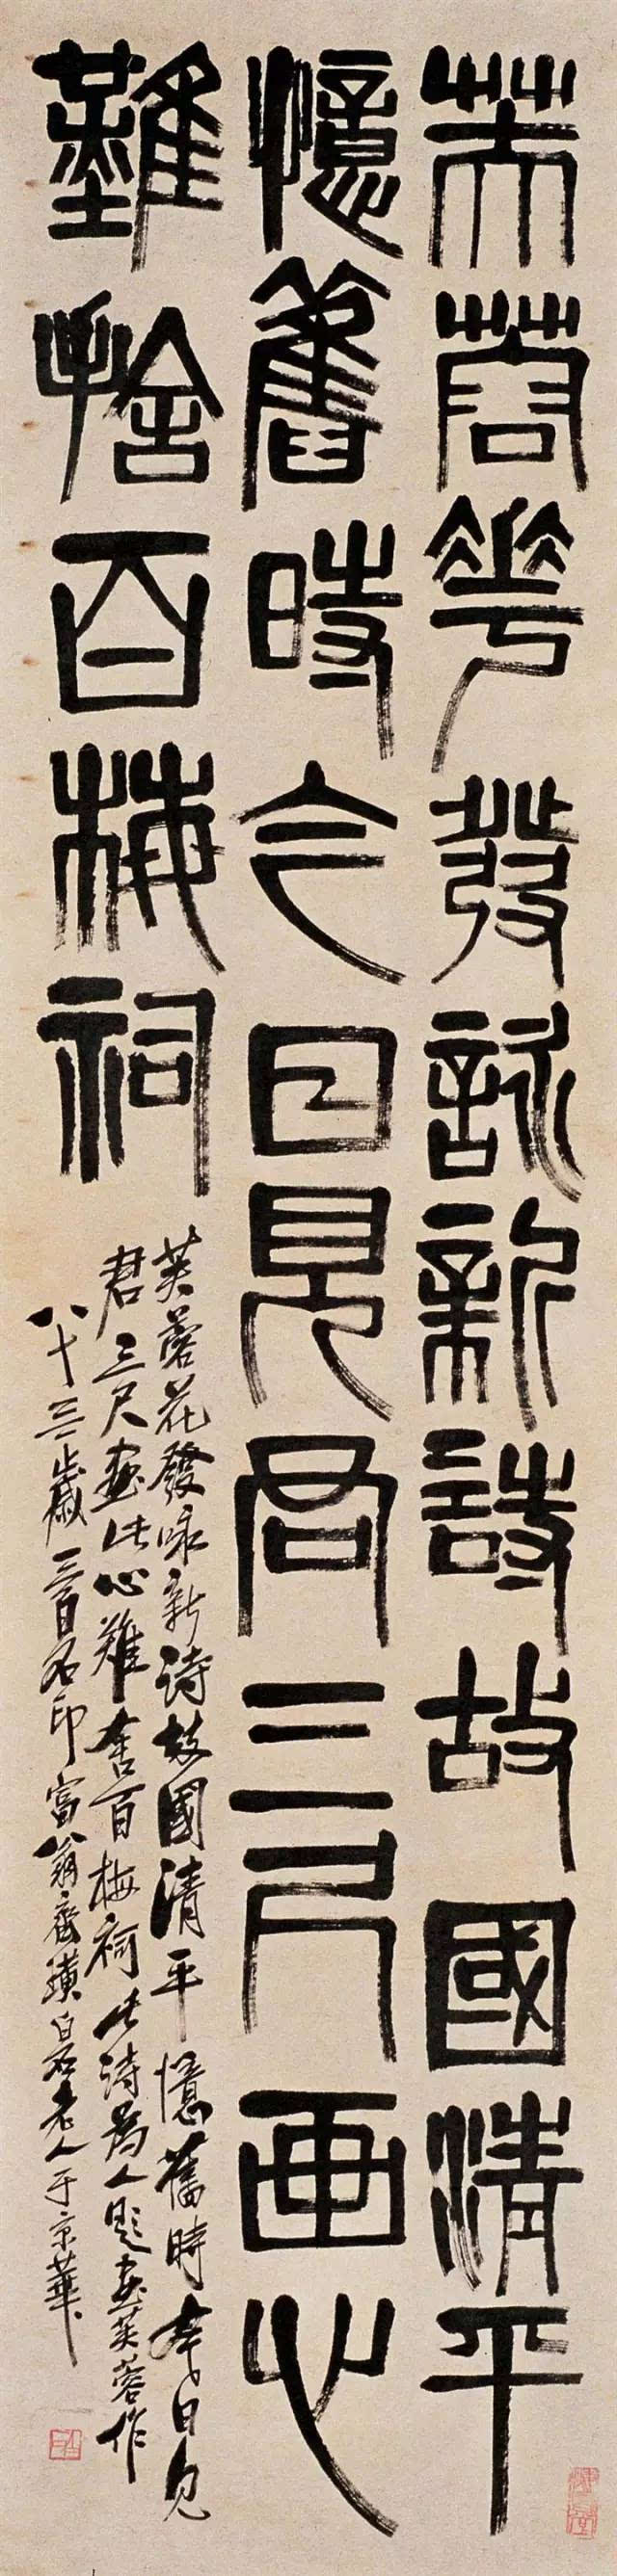 芙蓉花發詠新詩故國清平
憶舊時今日見君三尺画心
難捨百梅祠
芙蓉花發咏新诗故國清平憶舊時今日見
君三尺畫此心難舍百梅祠此诗為人題畫芙蓉作
八十三歲三百石印富翁齊璜白石老人于京華